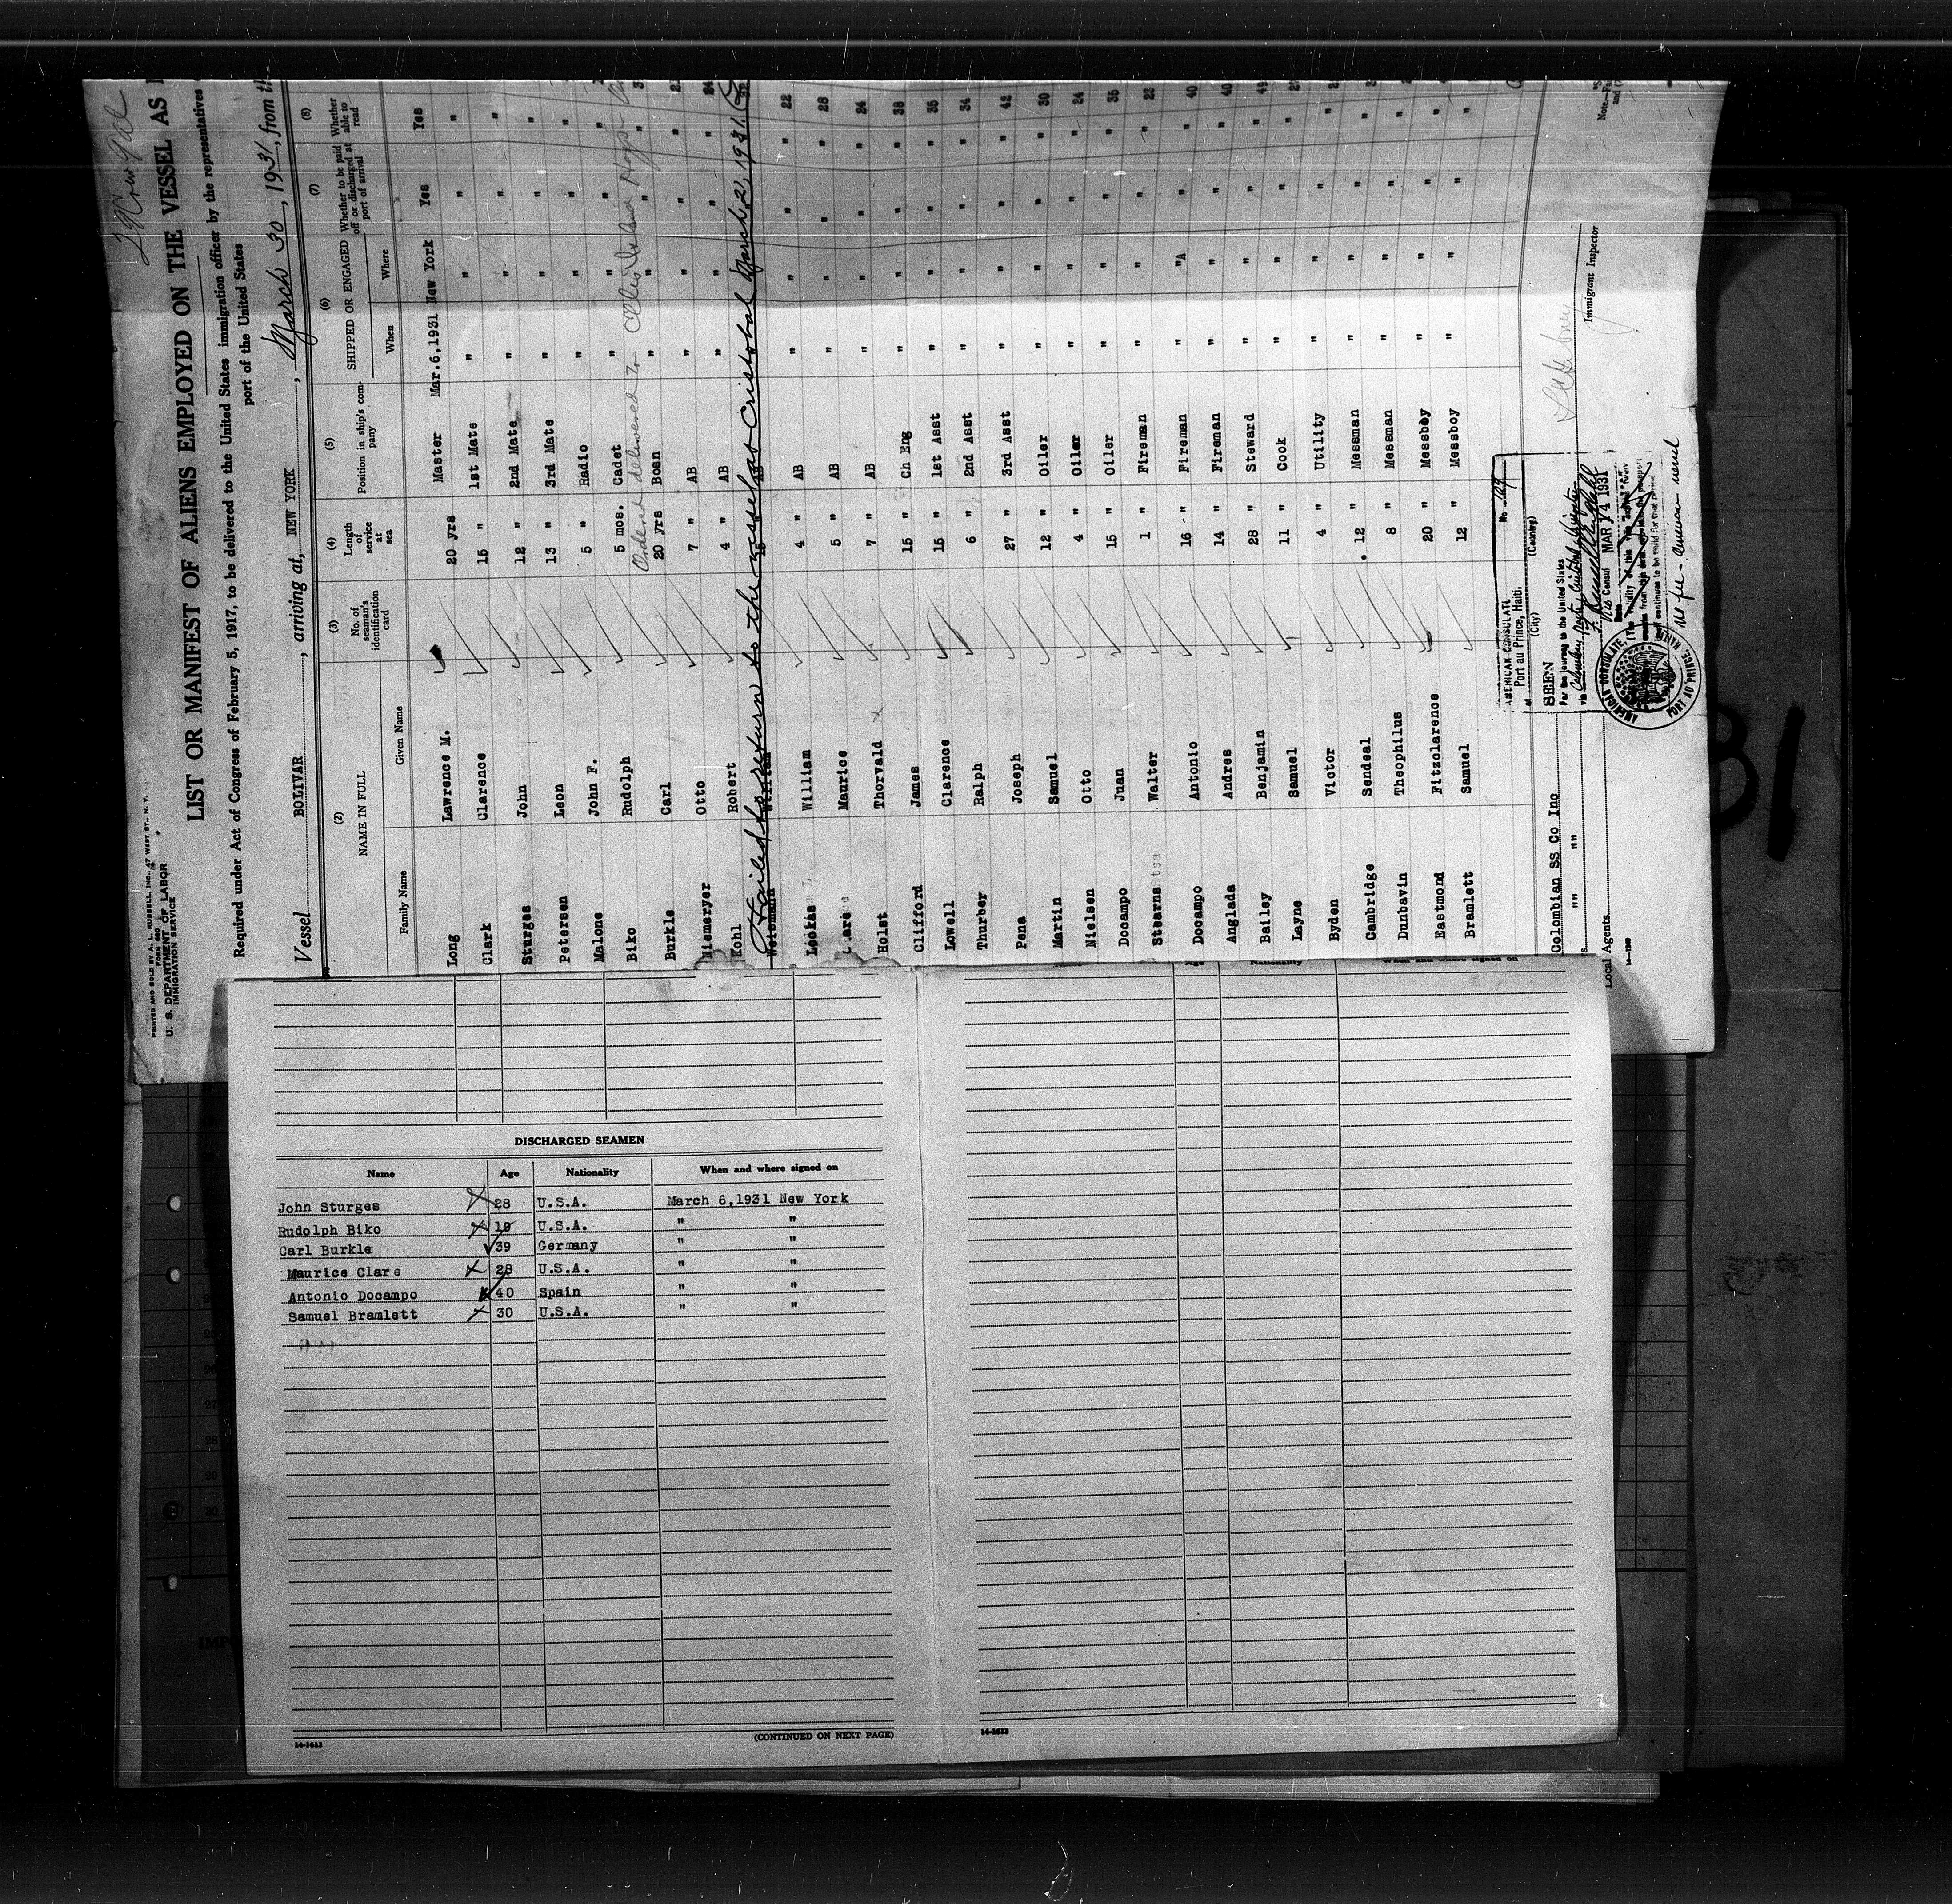 PRINTED AND SOLD BY A. L. RUSSELL, INC., 47 WEST ST., N. Y.
FORM 680
U. S. DEPARTMENT OF LABOR
IMMIGRATION SERVICE
LIST OR MANIFEST OF ALIENS EMPLOYED ON THE VESSEL AS
Required under Act of Congress of February 5, 1917, to be delivered to the United States immigration officer by the representatives
port of the United States
Vessel BOLIVAR, arriving at, NEW YORK, March 30, 1931, from th
(2) (3) (4) (5) (6) (7) (8)
NAME IN FULL No. of seaman's identification card Length of service at sea Position in ship's company SHIPPED OR ENGAGED Whether to be paid off or discharged at port of arrival Whether able to read
Family Name Given Name When Where
Long Lawrence M. 20 yrs Master Mar.6,1931 New York Yes Yes
Clark Clarence 15 " 1st Mate " " " "
Sturges John 12 " 2nd Mate " " " "
Petersen Leon 13 " 3rd Mate " " " "
Malone John F. 5 " Radio " " " "
Biko Rudolph 5 mos. Cadet " " " "
Ordered delivered to
Burkle Carl 20 yrs Bosn " " " "
Niemeryer Otto 7 " AB " " " "
Kohl Robert 4 " AB " " " "
Failed to return to the vessel at Cristobal March 21, 1931
Lookas William 4 " AB " " " " 22
Clare Maurice 5 " AB " " " " 28
Holst Thorvald 7 " AB " " " " 24
Clifford James 15 " Ch Eng " " " " 38
Lowell Clarence 15 " 1st Asst " " " " 35
Thurber Ralph 6 " 2nd Asst " " " " 34
Pena Joseph 27 " 3rd Asst " " " " 42
Martin Samuel 12 " Oiler " " " " 30
Nielsen Otto 4 " Oiler " " " " 24
Docampo Juan 15 " Oiler " " " " 35
Stearns Walter 1 " Fireman " " " " 23
Docampo Antonio 16 " Fireman " " " " 40
Anglada Andres 14 " Fireman " " " " 40
Bailey Benjamin 28 " Steward " " " "
Layne Samuel 11 " Cook " " " "
Byden Victor 4 " Utility " " " "
Cambridge Sendeal 12 " Messman " " " "
Dunbavin Theophilus 8 " Messman " " " "
Eastmond Fitzolarence 20 " Messboy " " " "
Bramlett Samuel 12 " Messboy " " " "
Colombian SS Co Inc
"" ""
Local Agents
Immigrant Inspector
AMERICAN CONSULATE
Port au Prince, Haiti.
(City) (Country)
SEEN
For the journey to the United States
Vice Consul MAR 24 1931
No fee - American vessel
AMERICAN CONSULATE
PORT AU PRINCE, HAITI
DISCHARGED SEAMEN
Name Age Nationality When and where signed on
John Sturges 28 U.S.A. March 6,1931 New York
Rudolph Biko 19 U.S.A. " "
Carl Burkle 39 Germany " "
Maurice Clare 28 U.S.A. " "
Antonio Docampo 40 Spain " "
Samuel Bramlett 30 U.S.A. " "
14-3613
(CONTINUED ON NEXT PAGE)
14-3613